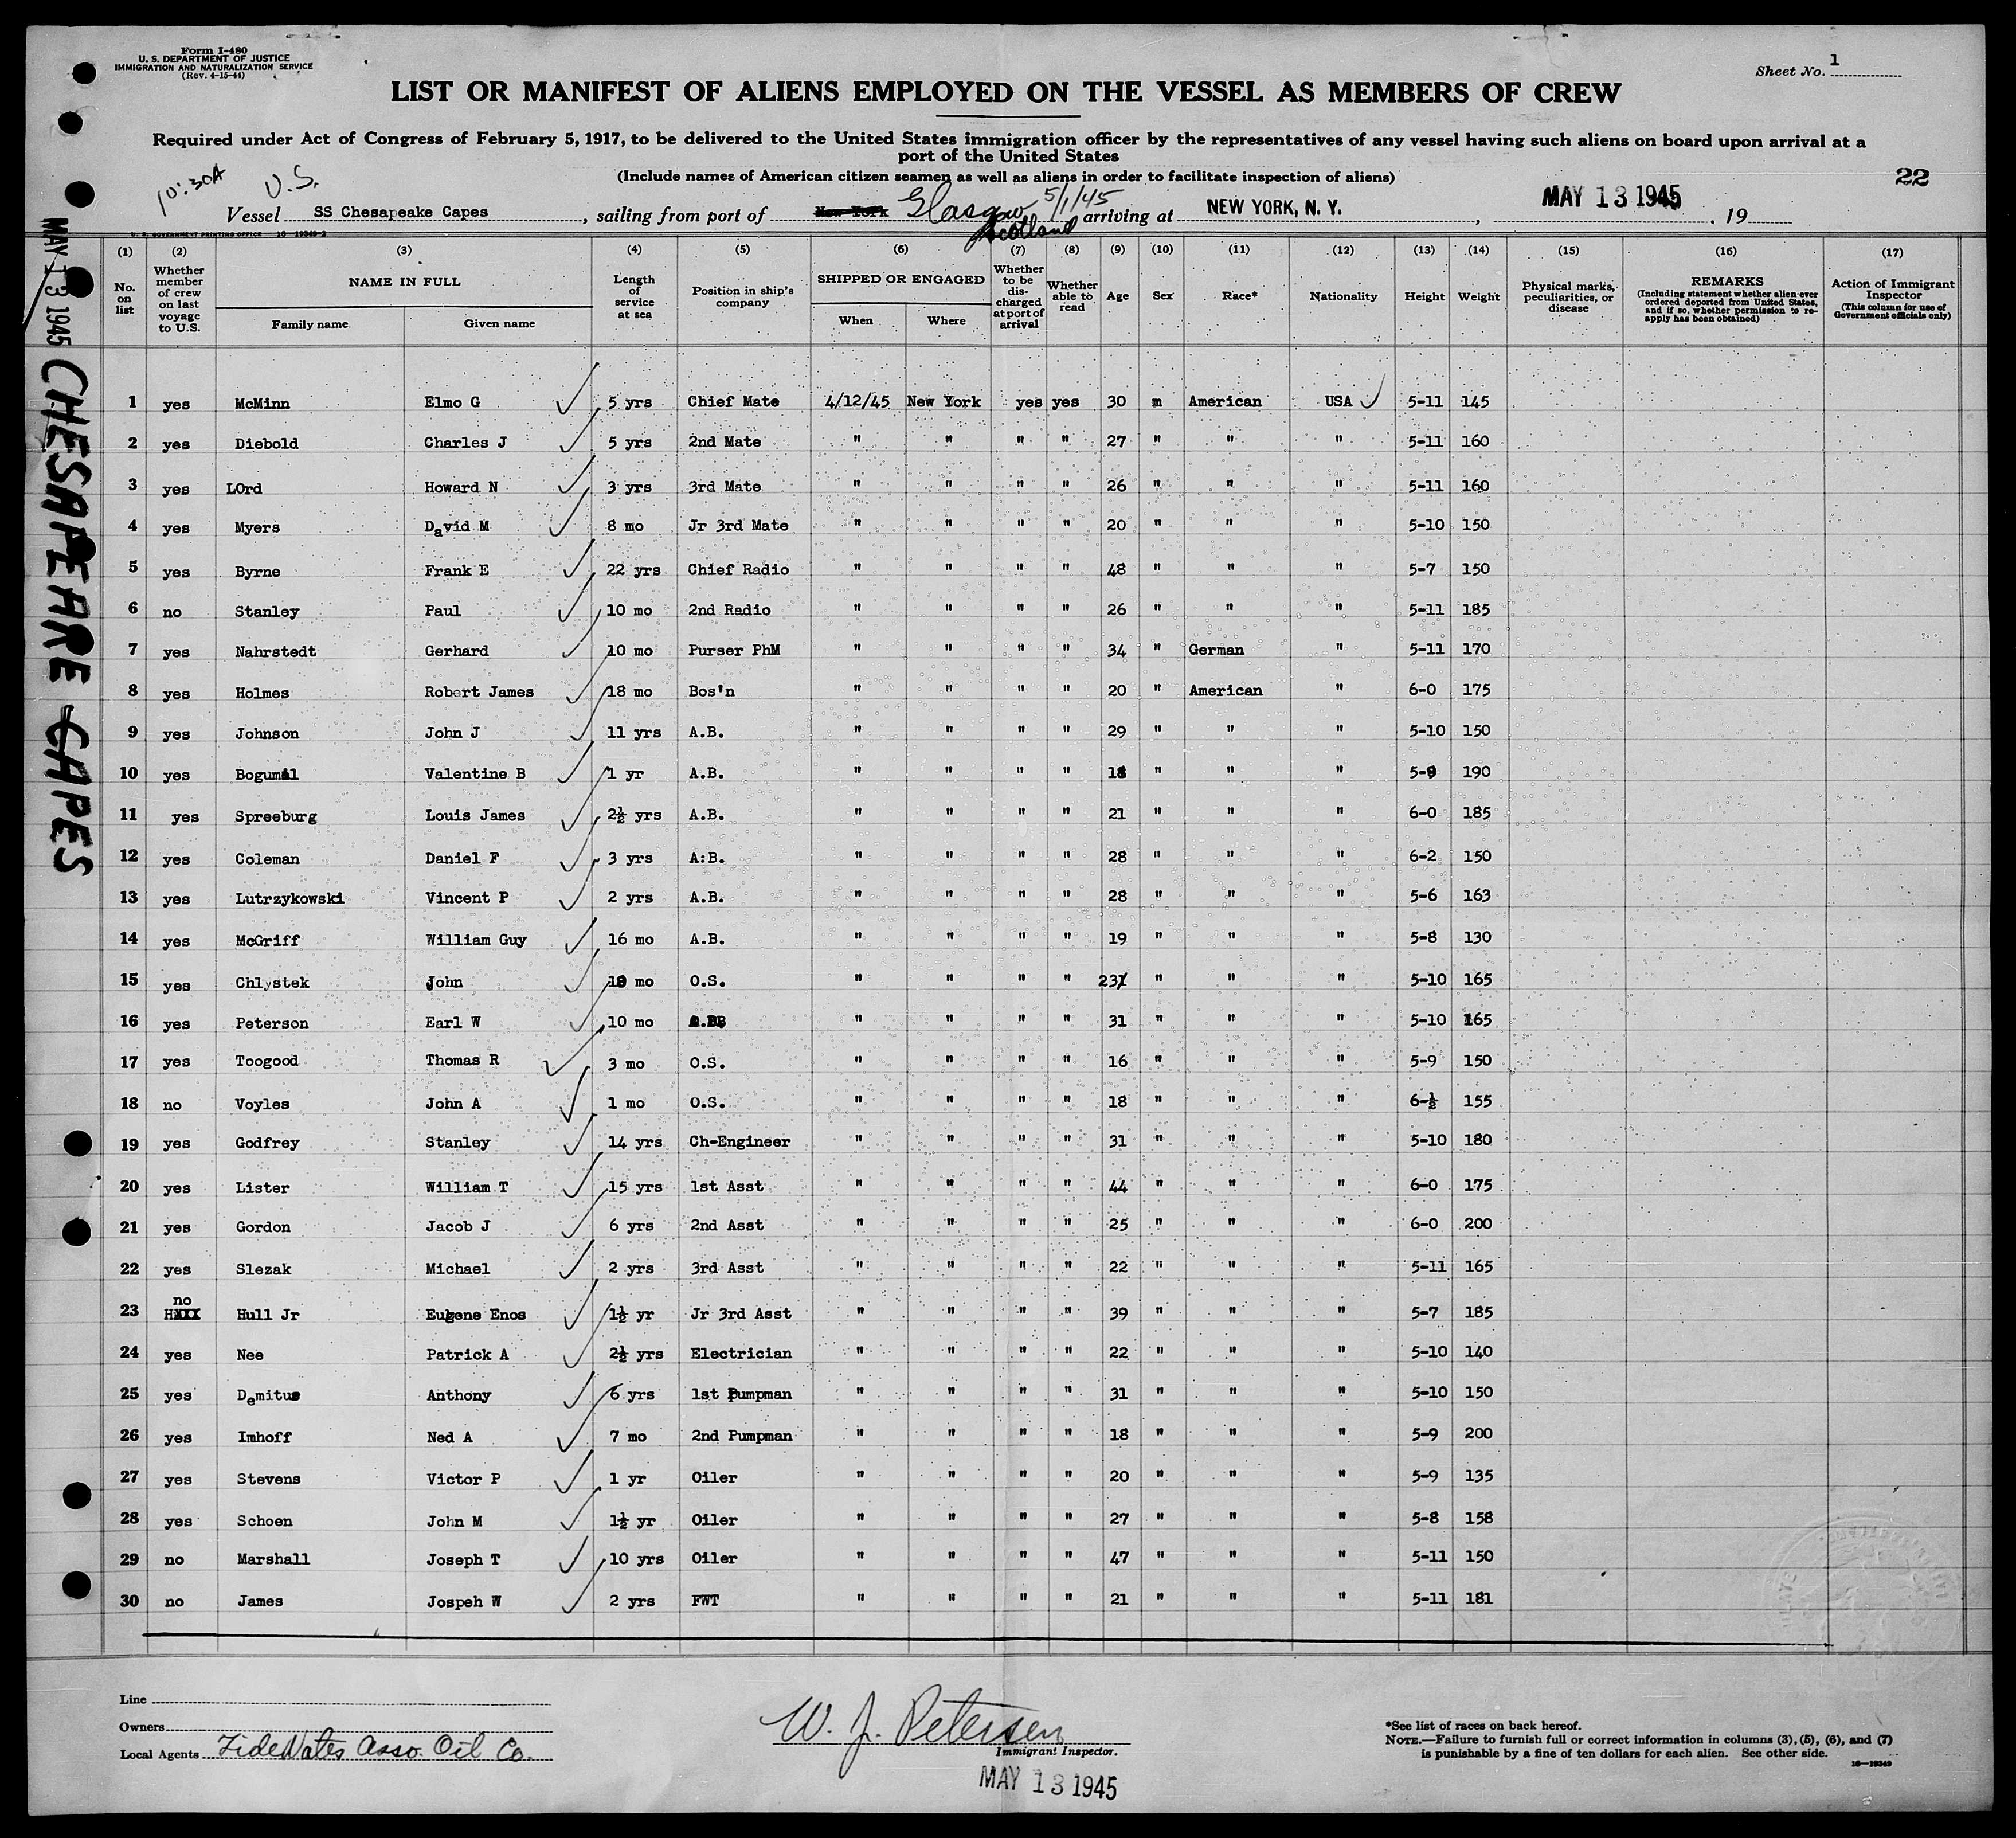 Form I-480
U. S. DEPARTMENT OF JUSTICE
IMMIGRATION AND NATURALIZATION SERVICE
(Rev. 4-15-44)
Sheet No. 1
LIST OR MANIFEST OF ALIENS EMPLOYED ON THE VESSEL AS MEMBERS OF CREW
Required under Act of Congress of February 5, 1917, to be delivered to the United States immigration officer by the representatives of any vessel having such aliens on board upon arrival at a
port of the United States
(Include names of American citizen seamen as well as aliens in order to facilitate inspection of aliens)
22
10:30A U.S.
Vessel SS Chesapeake Capes, sailing from port of New York Glasgow Scotland 5/1/45 arriving at NEW YORK, N. Y., MAY 13 1945, 19
U. S. GOVERNMENT PRINTING OFFICE 16-19349-2
MAY 13 1945 CHESAPEAKE CAPES
(1) (2) (3) (4) (5) (6) (7) (8) (9) (10) (11) (12) (13) (14) (15) (16) (17)
No. on list
Whether member of crew on last voyage to U.S.
NAME IN FULL
Family name Given name
Length of service at sea
Position in ship's company
SHIPPED OR ENGAGED
When Where
Whether to be discharged at port of arrival
Whether able to read
Age Sex Race* Nationality Height Weight
Physical marks, peculiarities, or disease
REMARKS
(Including statement whether alien ever ordered deported from United States, and if so, whether permission to re-apply has been obtained)
Action of Immigrant Inspector
(This column for use of Government officials only)
1 yes McMinn Elmo G 5 yrs Chief Mate 4/12/45 New York yes yes 30 m American USA 5-11 145
2 yes Diebold Charles J 5 yrs 2nd Mate " " " " 27 " " " 5-11 160
3 yes LOrd Howard N 3 yrs 3rd Mate " " " " 26 " " " 5-11 160
4 yes Myers David M 8 mo Jr 3rd Mate " " " " 20 " " " 5-10 150
5 yes Byrne Frank E 22 yrs Chief Radio " " " " 48 " " " 5-7 150
6 no Stanley Paul 10 mo 2nd Radio " " " " 26 " " " 5-11 185
7 yes Nahrstedt Gerhard 10 mo Purser PhM " " " " 34 " German " 5-11 170
8 yes Holmes Robert James 18 mo Bos'n " " " " 20 " American " 6-0 175
9 yes Johnson John J 11 yrs A.B. " " " " 29 " " " 5-10 150
10 yes Bogumil Valentine B 1 yr A.B. " " " " 18 " " " 5-9 190
11 yes Spreeburg Louis James 2½ yrs A.B. " " " " 21 " " " 6-0 185
12 yes Coleman Daniel F 3 yrs A:B. " " " " 28 " " " 6-2 150
13 yes Lutrzykowski Vincent P 2 yrs A.B. " " " " 28 " " " 5-6 163
14 yes McGriff William Guy 16 mo A.B. " " " " 19 " " " 5-8 130
15 yes Chlystek John mo O.S. " " " " 23 " " " 5-10 165
16 yes Peterson Earl W 10 mo " " " " 31 " " " 5-10 165
17 yes Toogood Thomas R 3 mo O.S. " " " " 16 " " " 5-9 150
18 no Voyles John A 1 mo O.S. " " " " 18 " " " 6-½ 155
19 yes Godfrey Stanley 14 yrs Ch-Engineer " " " " 31 " " " 5-10 180
20 yes Lister William T 15 yrs 1st Asst " " " " 44 " " " 6-0 175
21 yes Gordon Jacob J 6 yrs 2nd Asst " " " " 25 " " " 6-0 200
22 yes Slezak Michael 2 yrs 3rd Asst " " " " 22 " " " 5-11 165
23 no Hull Jr Eugene Enos 1½ yr Jr 3rd Asst " " " " 39 " " " 5-7 185
24 yes Nee Patrick A 2½ yrs Electrician " " " " 22 " " " 5-10 140
25 yes Demitus Anthony 6 yrs 1st Pumpman " " " " 31 " " " 5-10 150
26 yes Imhoff Ned A 7 mo 2nd Pumpman " " " " 18 " " " 5-9 200
27 yes Stevens Victor P 1 yr Oiler " " " " 20 " " " 5-9 135
28 yes Schoen John M 1½ yr Oiler " " " " 27 " " " 5-8 158
29 no Marshall Joseph T 10 yrs Oiler " " " " 47 " " " 5-11 150
30 no James Jospeh W 2 yrs FWT " " " " 21 " " " 5-11 181
Line
Owners
Local Agents TideWater Asso. Oil Co.
W. J. Petersen
Immigrant Inspector.
MAY 13 1945
*See list of races on back hereof.
NOTE.—Failure to furnish full or correct information in columns (3), (5), (6), and (7)
is punishable by a fine of ten dollars for each alien. See other side.
16-19349